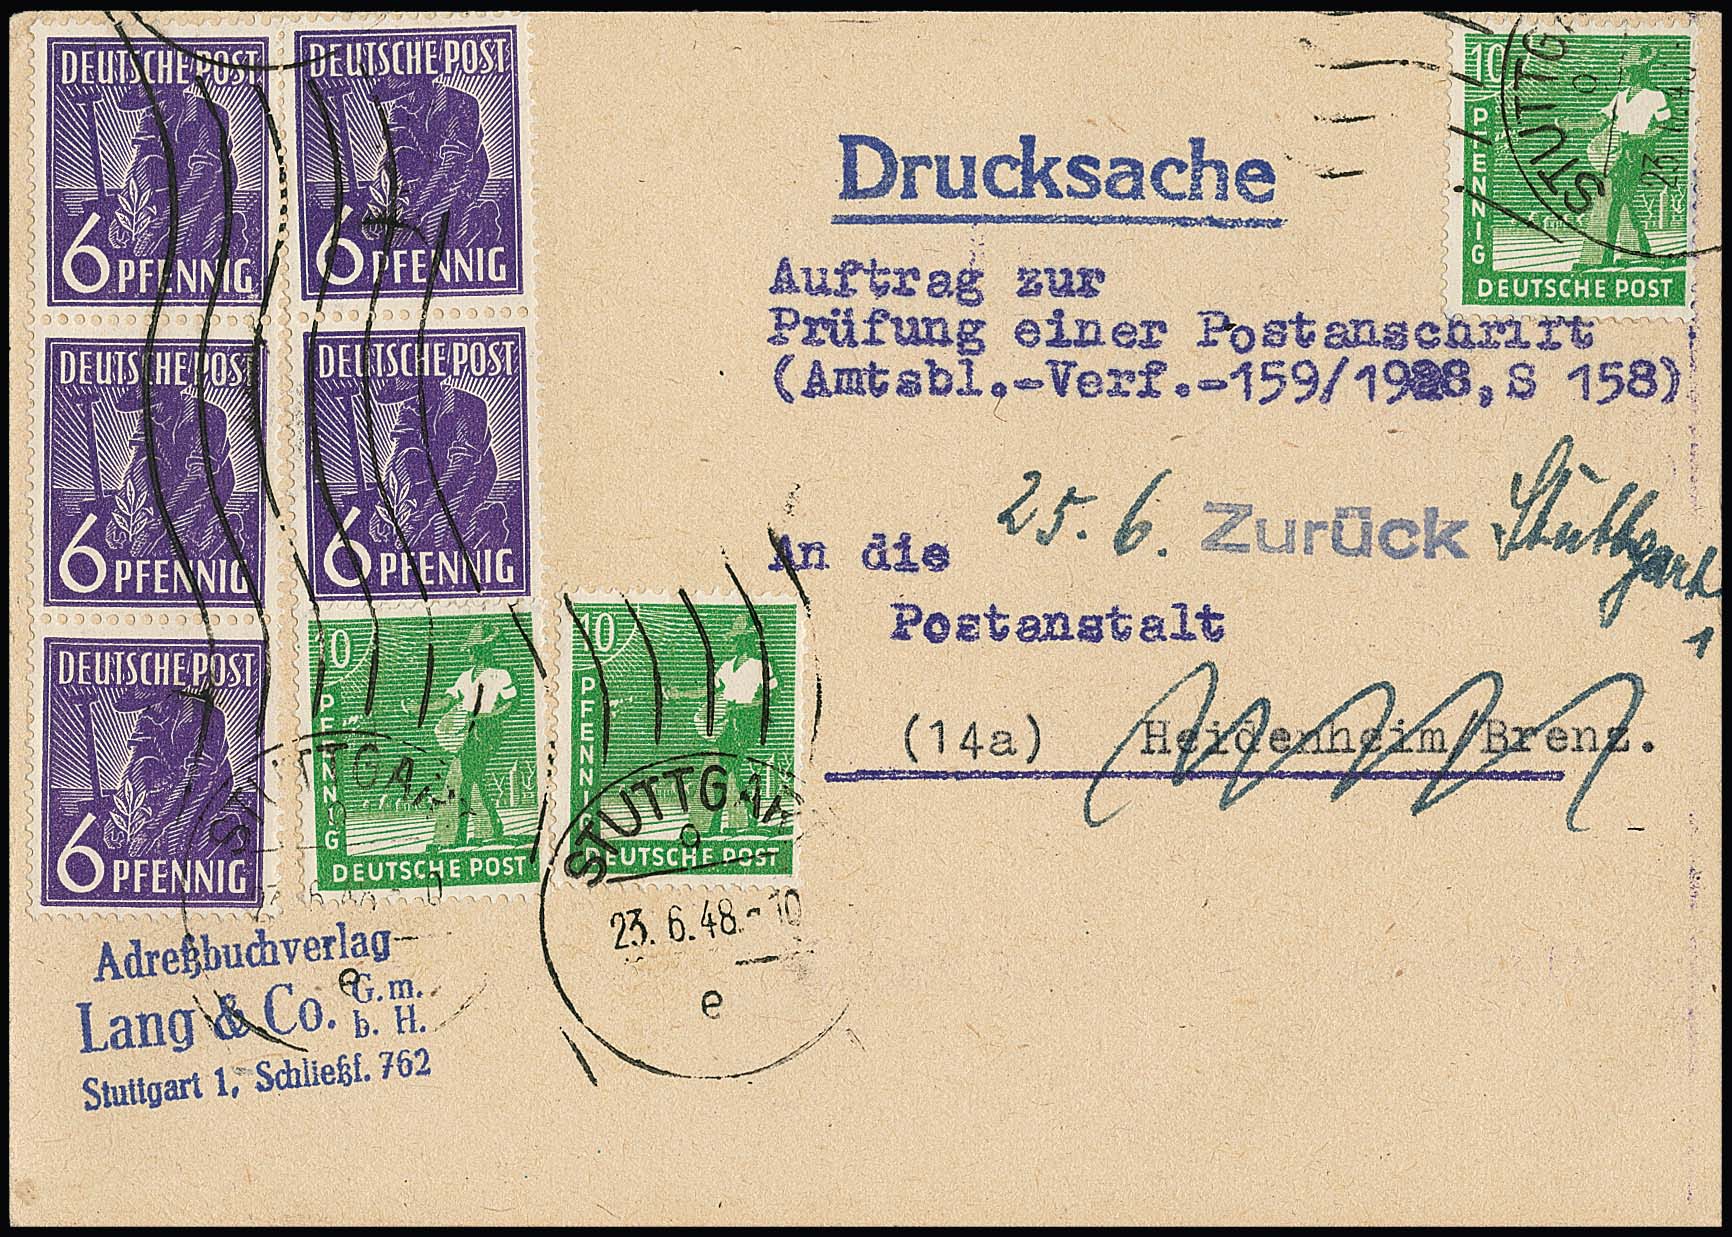 DEUTSCHE POST
6 PFENNIG
DEUTSCHE POST
6 PFENNIG
DEUTSCHE POST
6 PFENNIG
DEUTSCHE POST
6 PFENNIG
DEUTSCHE POST
6 PFENNIG
10
PFENNIG
DEUTSCHE POST
10
PFENNIG
DEUTSCHE POST
10
PFENNIG
DEUTSCHE POST
STUTTG
23
Drucksache
Auftrag zur
Prüfung einer Postanschrift
(Amtsbl.-Verf.-159/1928, S 158)
25. 6. Zurück Stuttgart
1
An die
Postanstalt
(14a) Heidenheim/Brenz.
STUTTGAR
e
STUTTGAR
9
23.6.48.-10
e
Adreßbuchverlag
Lang & Co. G.m.
b. H.
Stuttgart 1, Schließf. 762